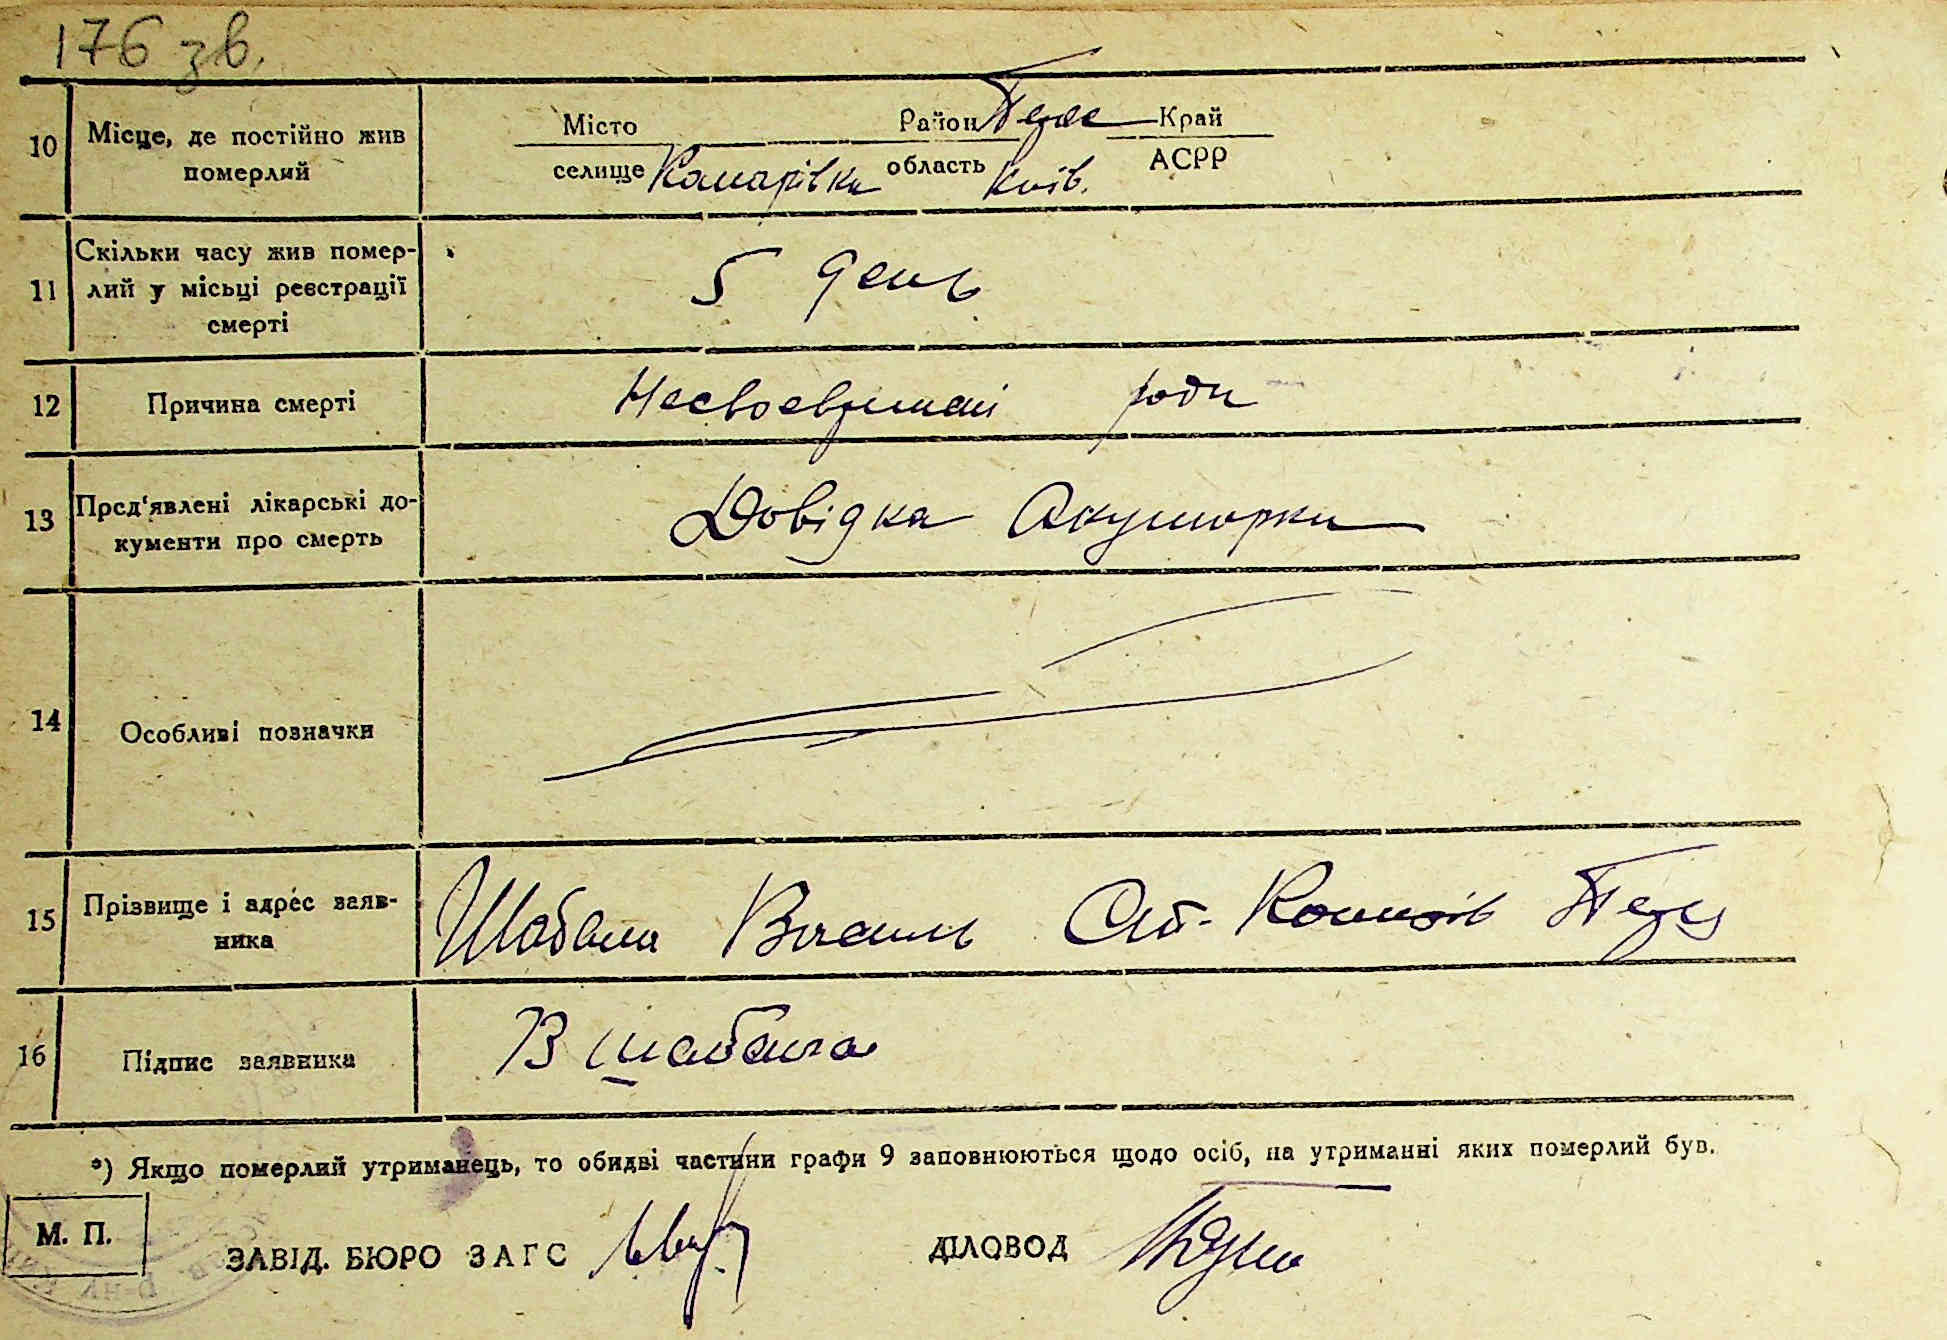 176 зв.
10 Місце, де постійно жив померлий
Місто Район Край
селище Комарівка область Київ. АСРР
11 Скільки часу жив померлий у місьці реєстрації смерті
5 день
12 Причина смерті
Несвоевремені роди
13 Пред'явлені лікарські документи про смерть
Довідка Акушорки
14 Особливі позначки
15 Прізвище і адрес заявника
Шабала Василь
16 Підпис заявника
В Шабала
*) Якщо померлий утриманець, то обидві частини графи 9 заповнюються щодо осіб, на утриманні яких померлий був.
М. П.
ЗАВІД. БЮРО ЗАГС ДІЛОВОД